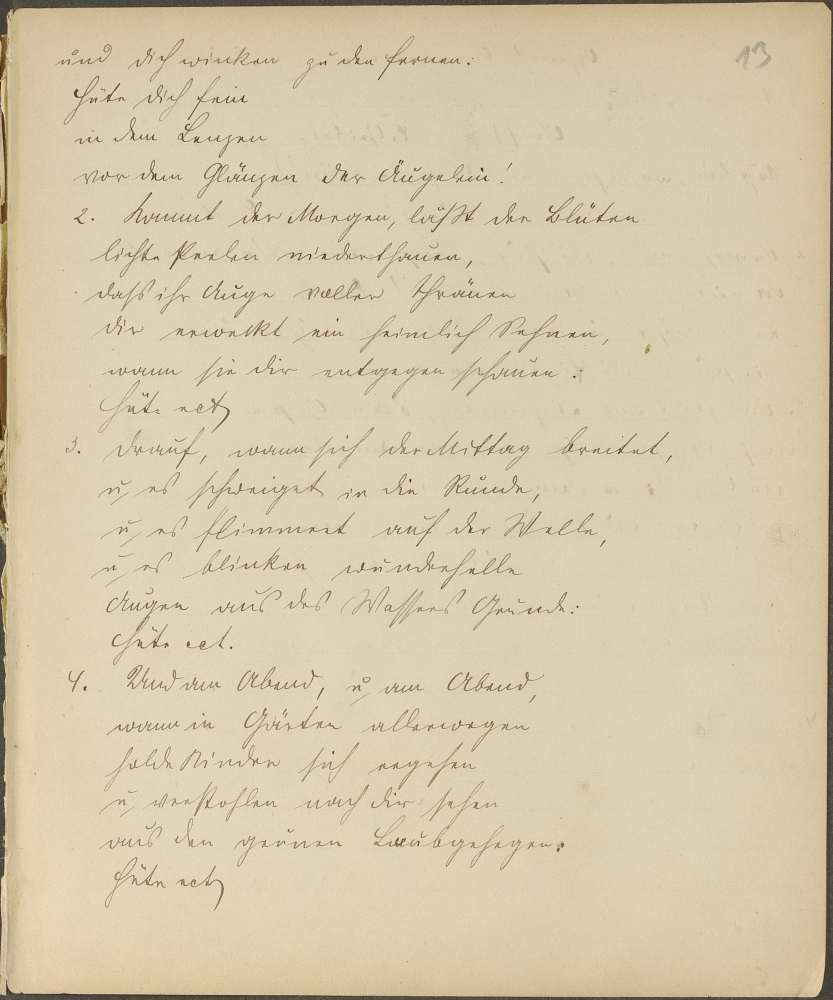 13
und dich winken zu den fernen:
Hüte dich fein
in dem Lenzen
vor dem Glänzen der Äugelein!
2. Kommt der Morgen, läßt der Blüten
lichte Perlen niederthauen,
dass ihr Auge voller Thränen
dir erweckt ein heimlich Sehnen,
wann sie dir entgegen schauen:
Hüte ect
3. Drauf, wann sich der Mittag breitet,
u. es schweiget in die Runde,
u. es flimmert auf der Welle,
u. es blinken wunderhelle
Augen aus des Wassers Grunde:
Hüte ect.
4. Und am Abend, u. am Abend,
wann in Gärten allerwegen
holde Kinder sich ergehen
u. verstohlen nach dir sehen
aus den grünen Laubgehegen:
Hüte ect